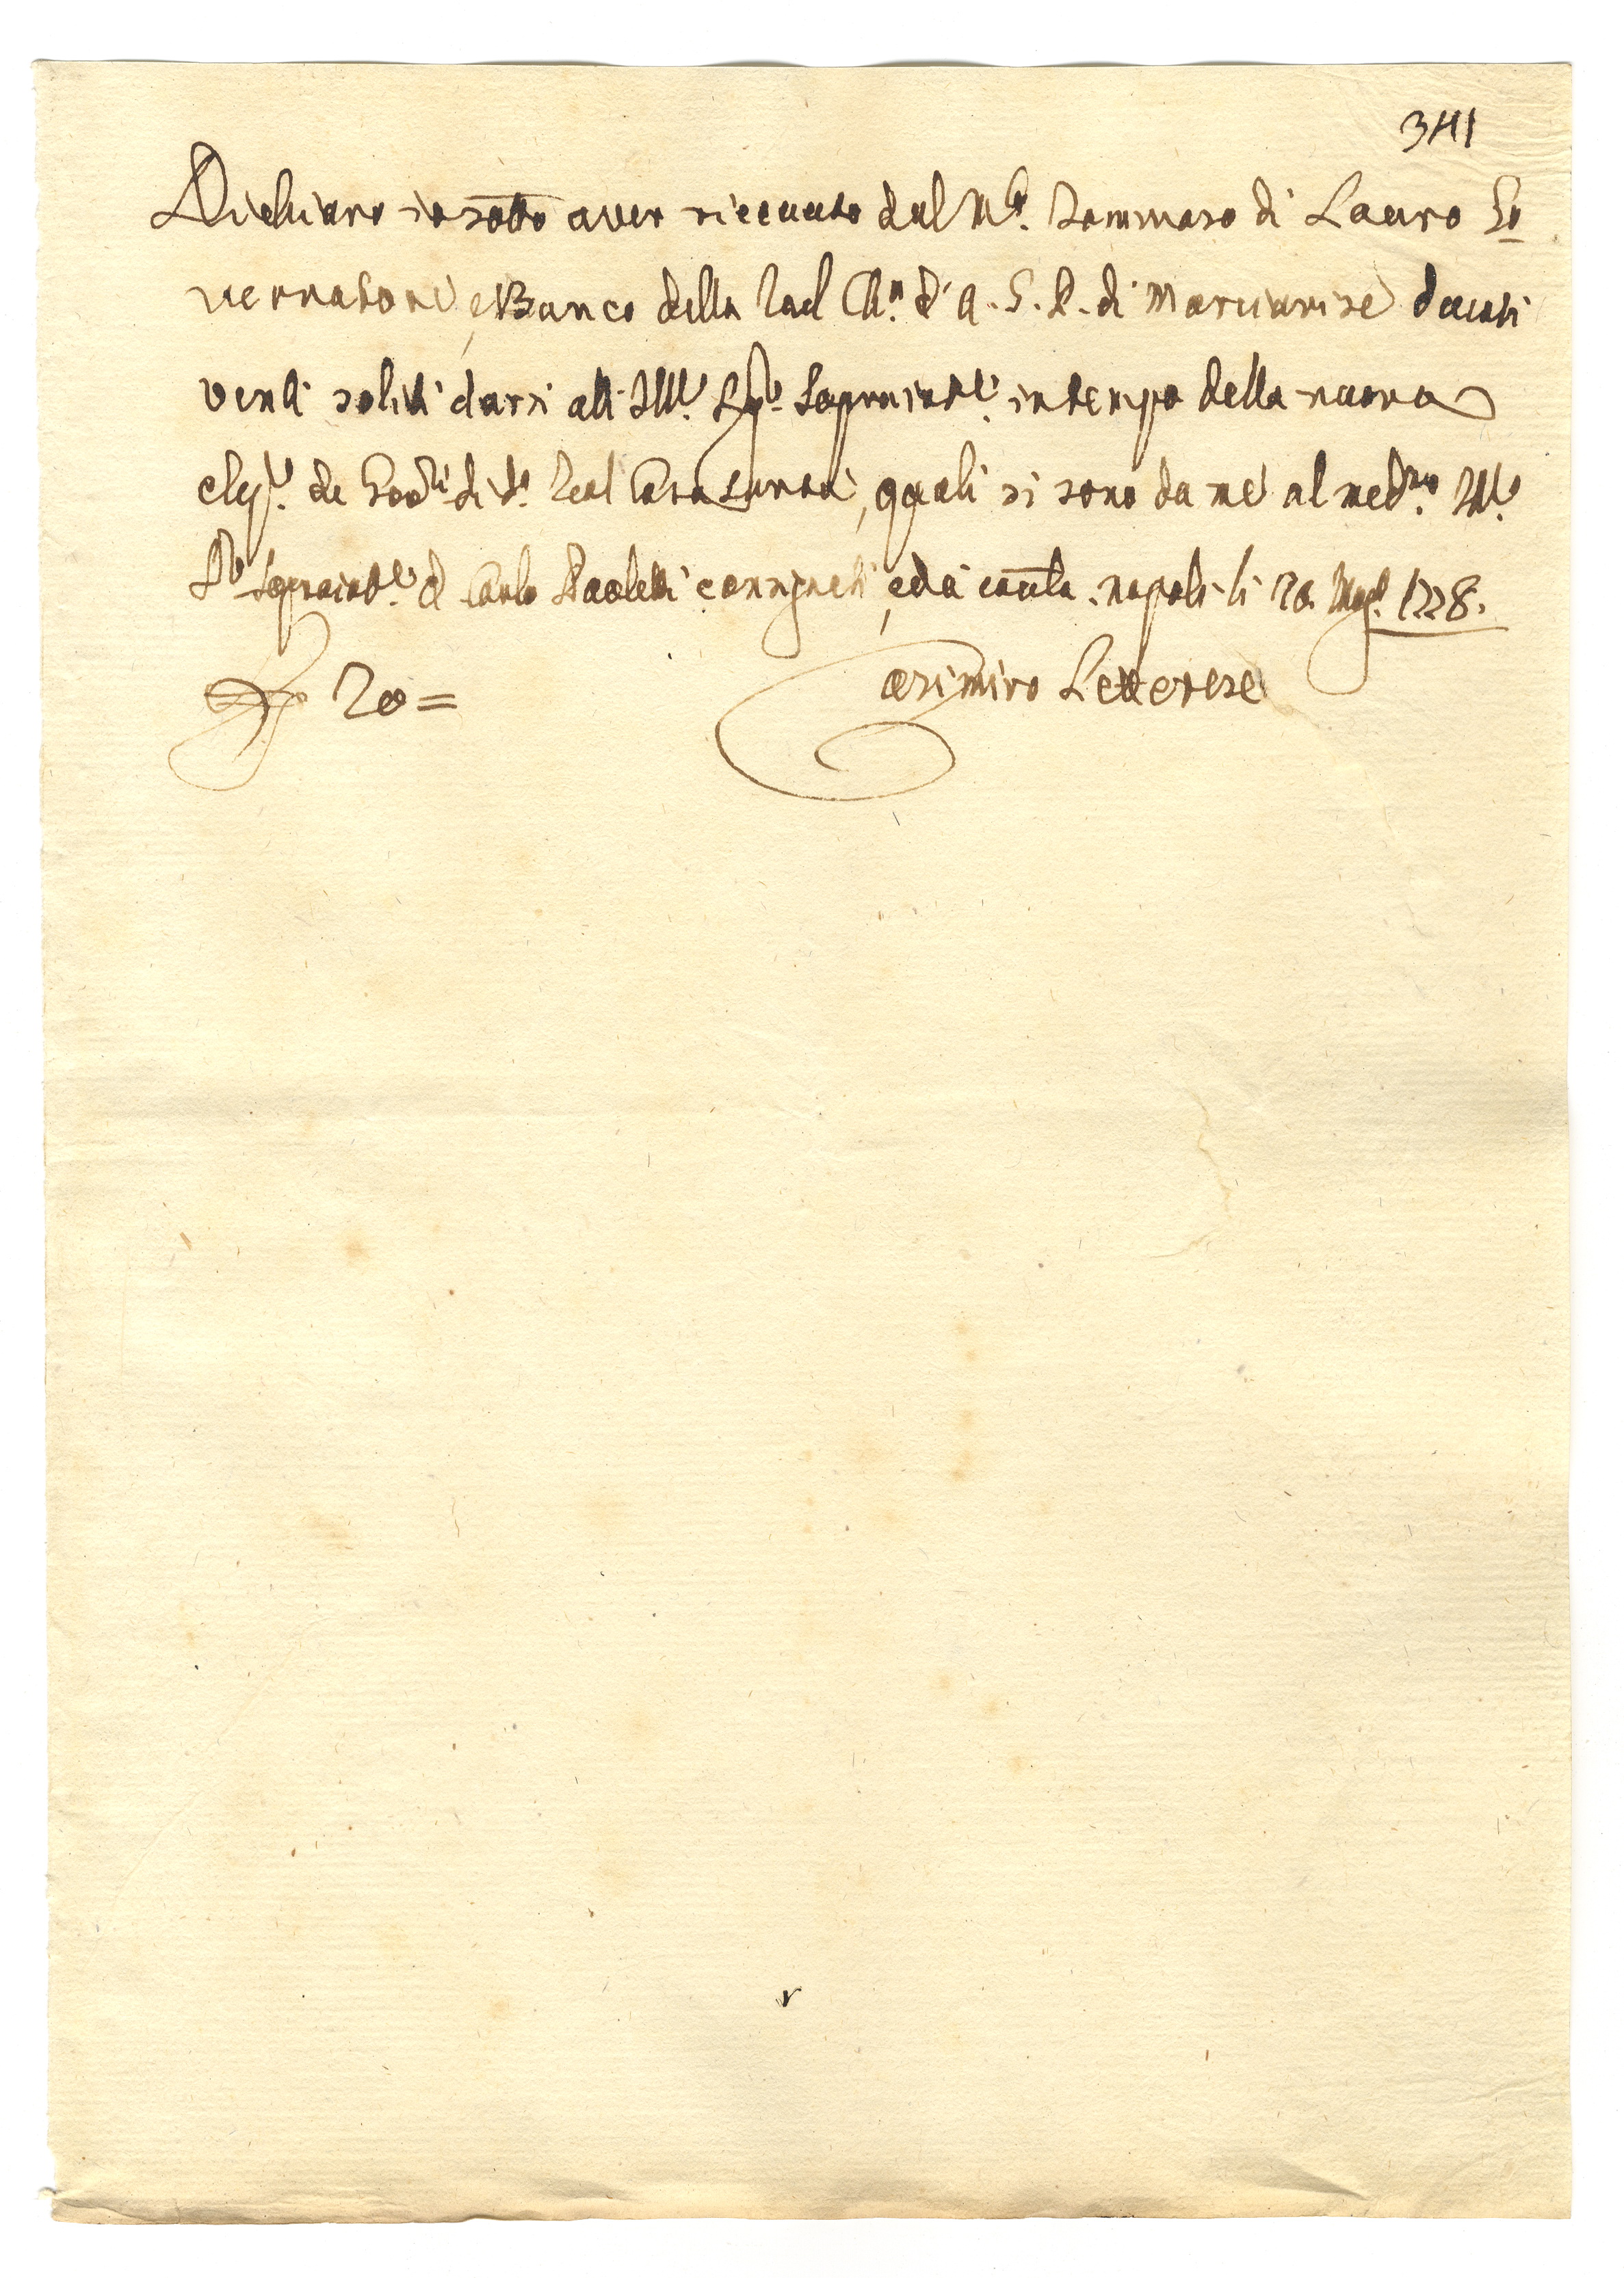 341
Dichiaro io sotto aver riceuuto dal M.co Tommaso di Lauro Go
vernatore, e Banco della Real Ch.a d'A. G. P. di Marcianise ducati
venti soliti darsi all' Ill.e Sig.re Sopraint.e in tempo della nuova
elez.e de Gov.ri di d.a Real Casa Santa, quali si sono da me al med.mo Ill.e
S.re Sopraint.e D. Carlo Paoletti consignati, ed a cautela. Napoli li 20. Mag.o 1778.
20 =
Casimiro Letterese